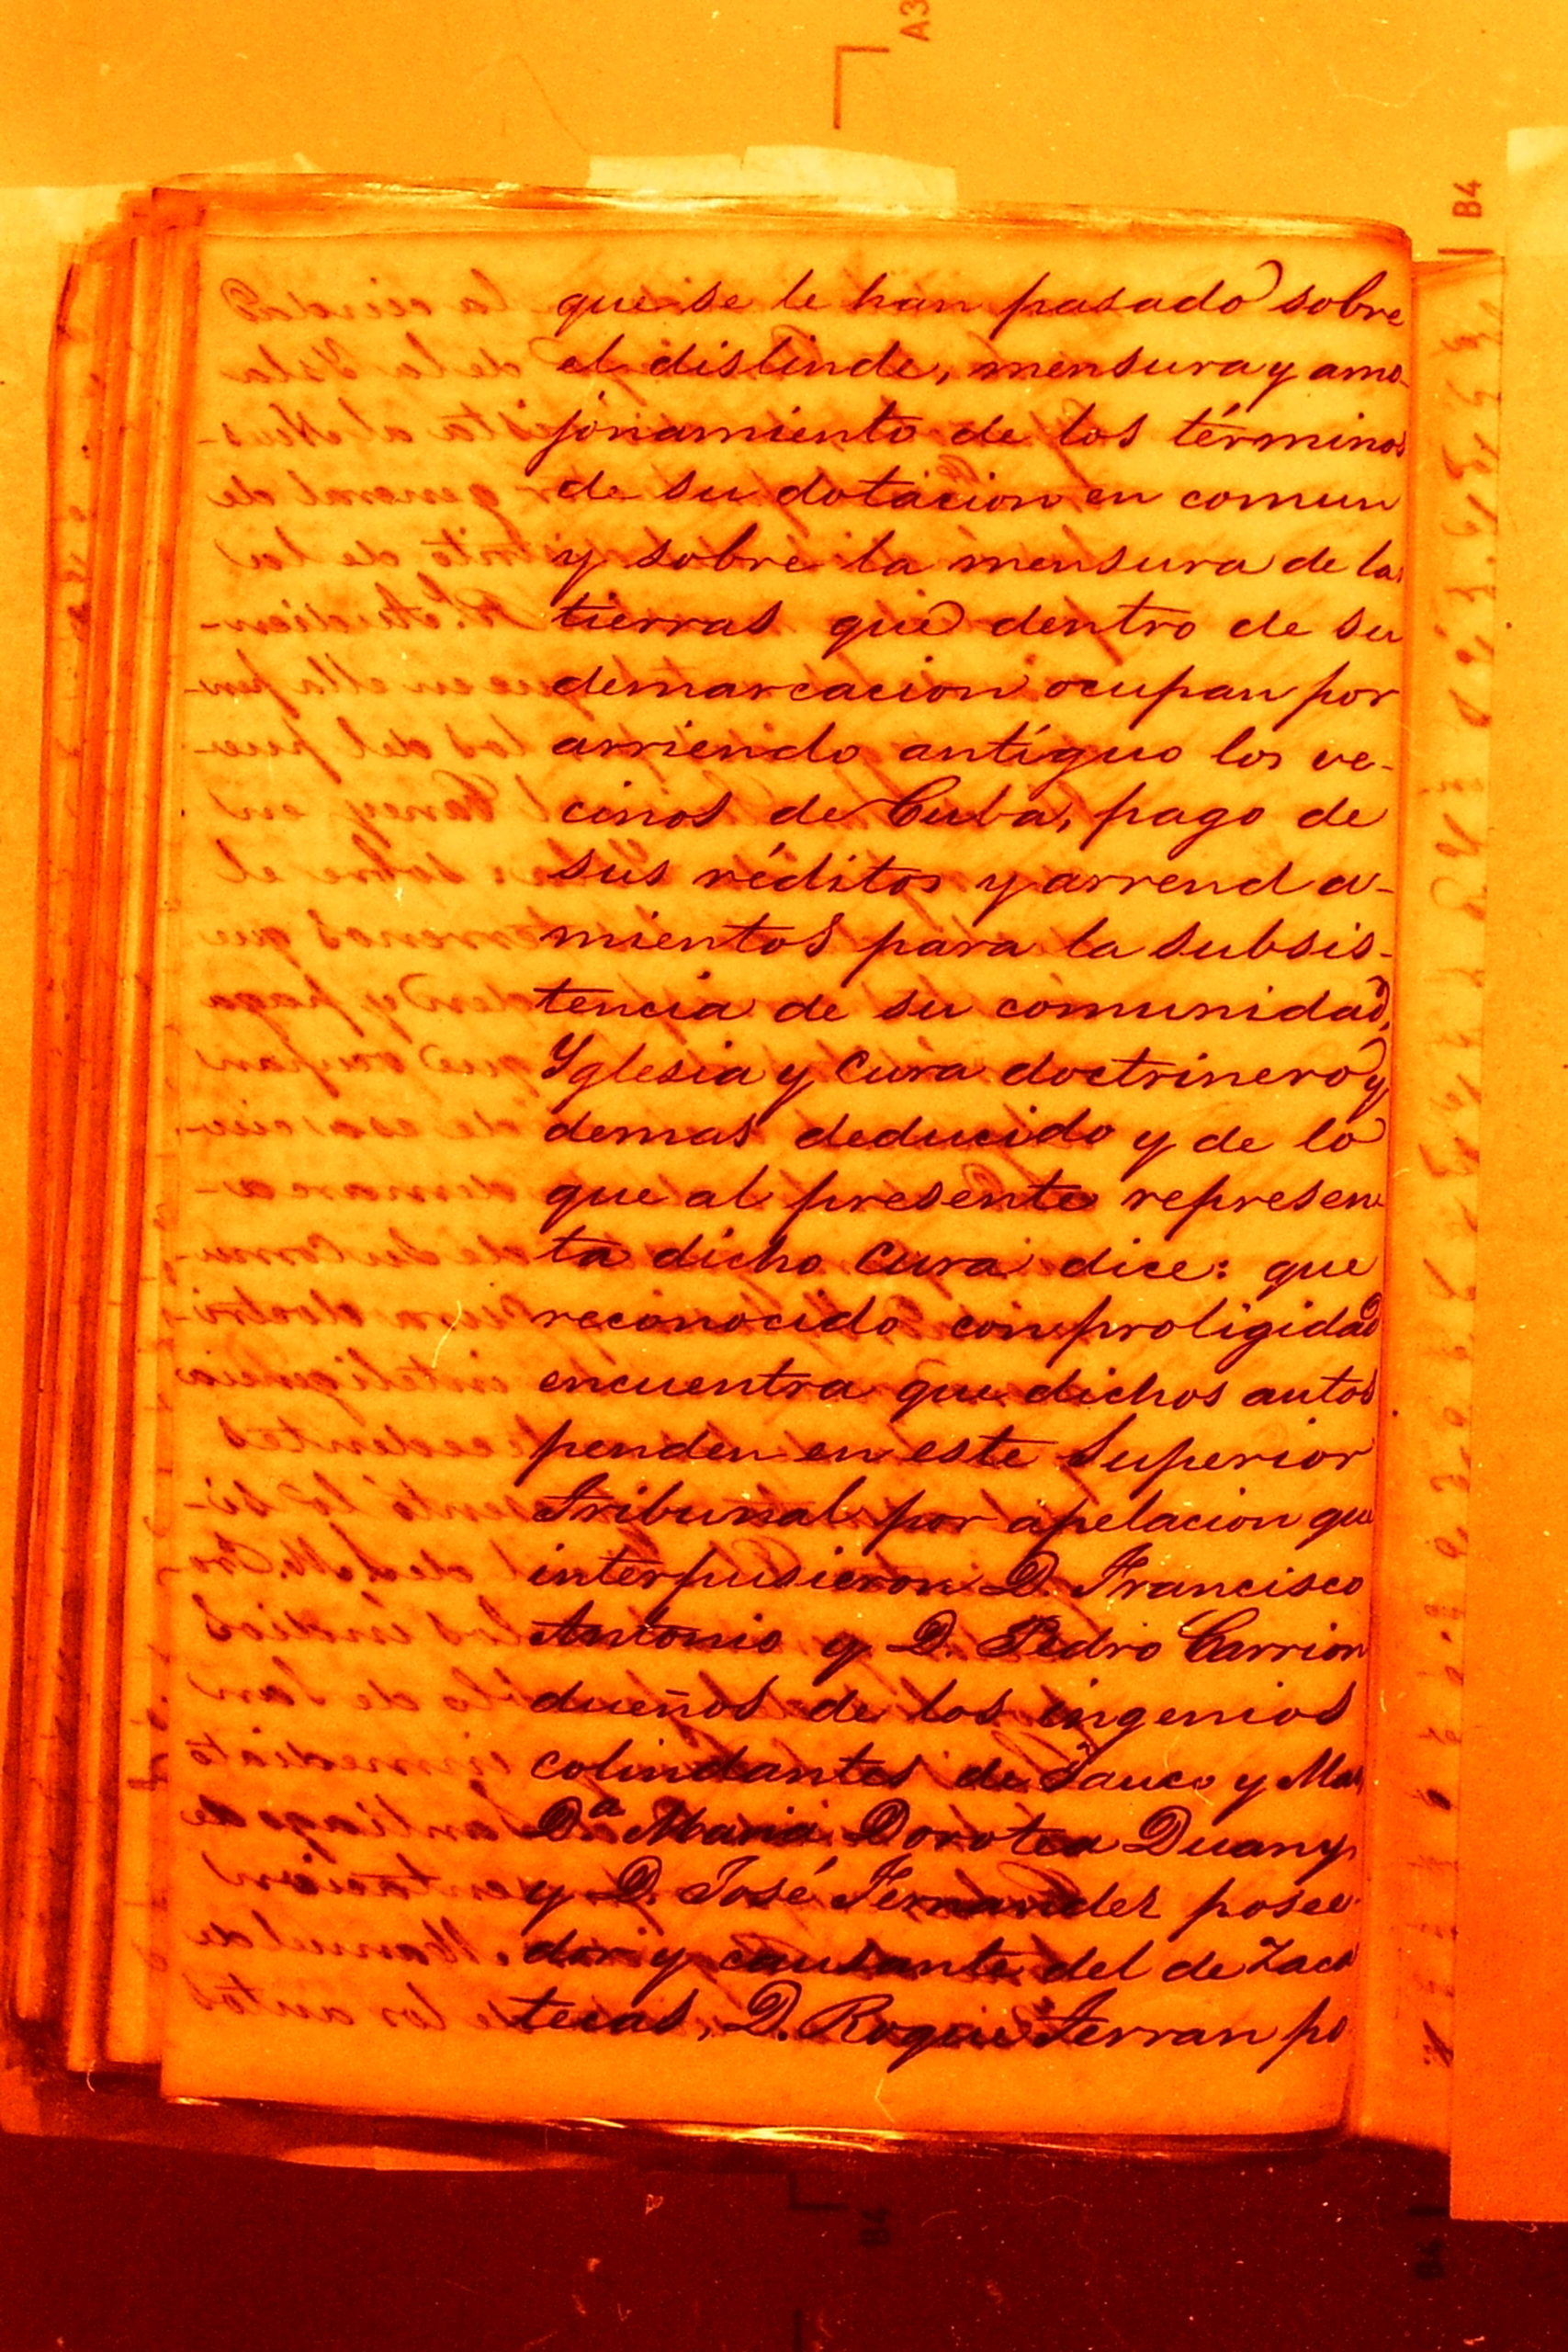 A3
B4
que se le han pasado sobre
el dislinde, mensura y amo-
jonamiento de los términos
de su dotacion en comun
y sobre la mensura de las
tierras que dentro de su
demarcacion ocupan por
arriendo antíguo los ve-
cinos de Cuba, pago de
sus réditos y arrenda-
mientos para la subsis-
tencia de su comunidad,
Yglesia y Cura doctrinero y
demas deducido y de lo
que al presente represen
ta dicho Cura dice: que
reconocido con proligidad
encuentra que dichos autos
penden en este Superior
Tribunal por apelacion que
interpusieron D. Francisco
Antonio y D. Pedro Carrion
dueños de los ingenios
colindantes de y
Dª Maria Dorotea Duany
y D. José Fernandez posee-
dor y causante del de Zaca
tecas, D. Roque Ferran po
B4